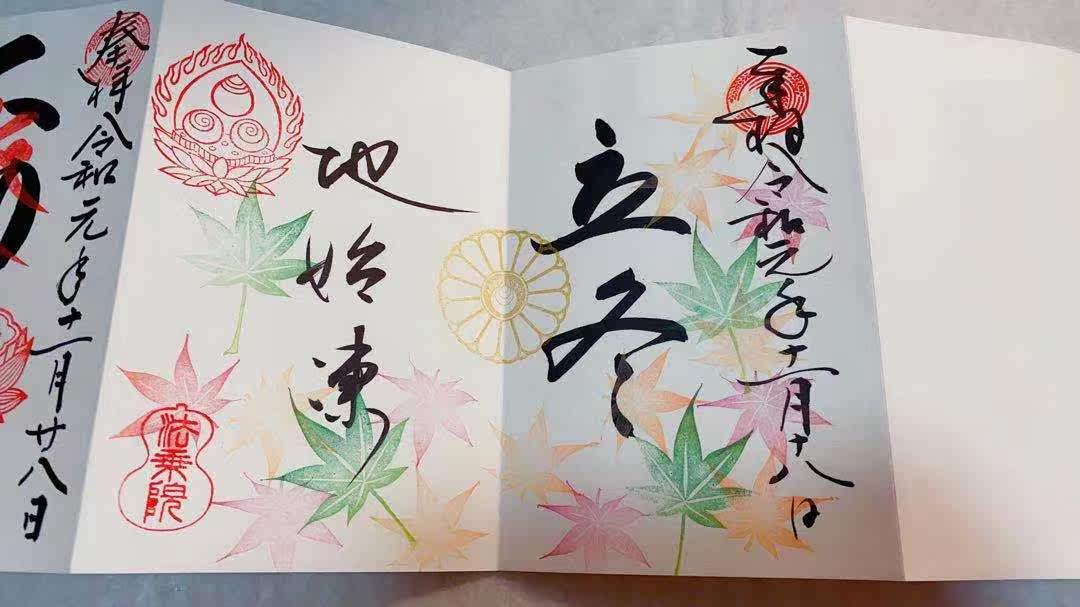 奉拝 令和元年十一月十八日
立冬
地始凍
法乗院
奉拝 令和元年十一月廿八日